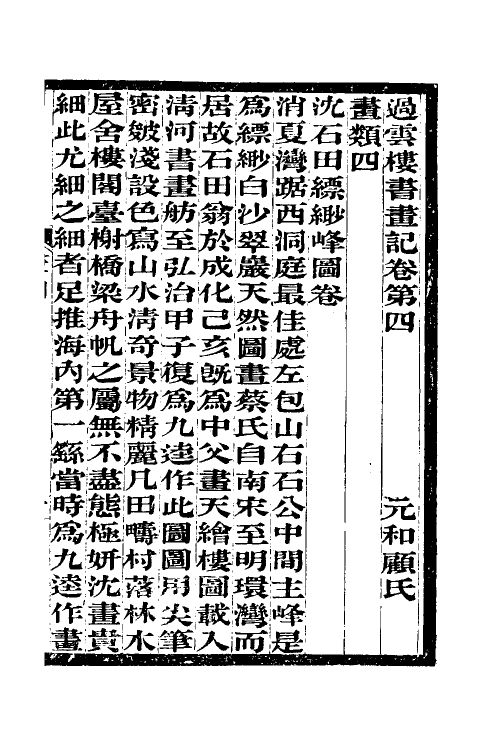 過雲樓書畫記卷第四　元和顧氏
畫類四
沈石田縹緲峰圖卷
消夏灣踞西洞庭最佳處左包山右石公中間主峰是
爲縹緲白沙翠巖天然圖畫蔡氏自南宋至明環灣而
居故石田翁於成化己亥旣爲中父畫天繪樓圖載入
淸河書畫舫至弘治甲子復爲九逵作此圖圖用尖筆
密皴淺設色寫山水淸奇景物精麗凡田疇村落林木
屋舍樓閣臺榭橋梁舟帆之屬無不盡態極妍沈畫貴
細此尤細之細者足推海內第一緐當時爲九逵作畫